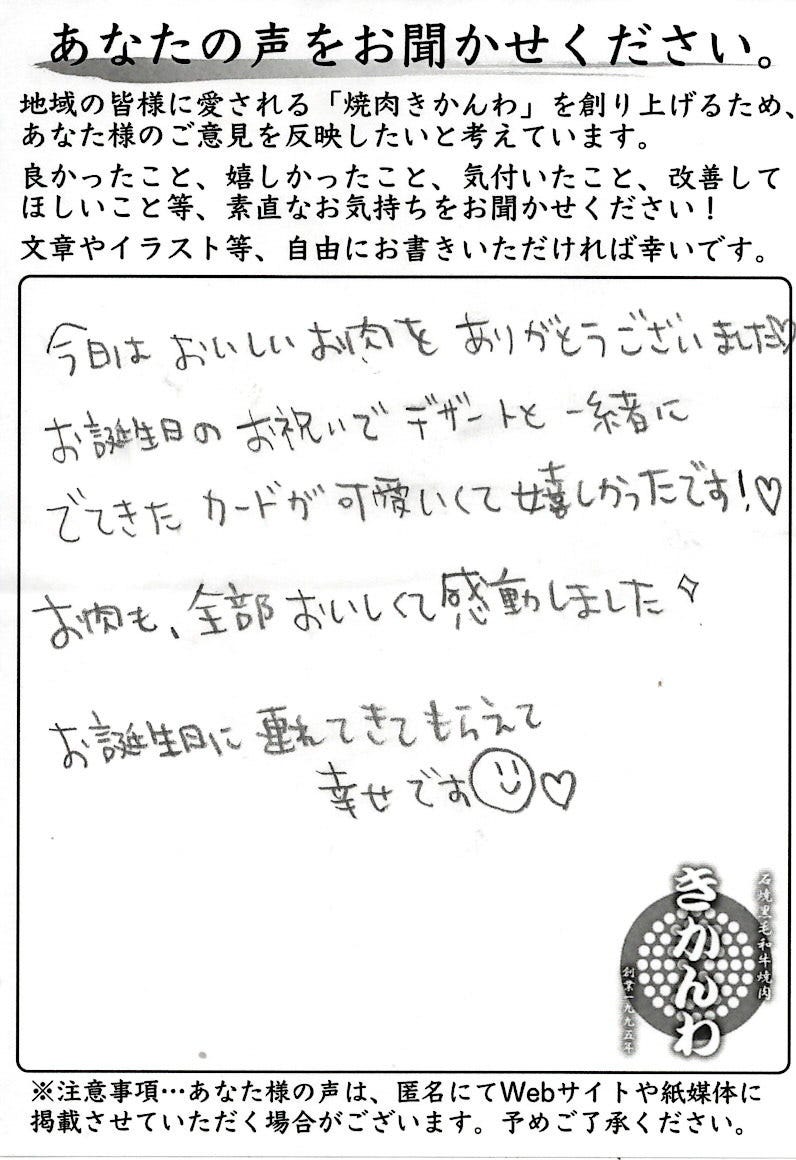 あなたの声をお聞かせください。
地域の皆様に愛される「焼肉きかんわ」を創り上げるため、
あなた様のご意見を反映したいと考えています。
良かったこと、嬉しかったこと、気付いたこと、改善して
ほしいこと等、素直なお気持ちをお聞かせください！
文章やイラスト等、自由にお書きいただければ幸いです。
今日は おいしい お肉を ありがとうございました♡
お誕生日の お祝いで デザートと 一緒に
でてきた カードが 可愛いくて 嬉しかったです！♡
お肉も、全部 おいしくて 感動しました✧
お誕生日に 連れてきてもらえて
幸せです☺♡
石焼黒毛和牛焼肉
きかんわ
創業一九九五年
※注意事項…あなた様の声は、匿名にてWebサイトや紙媒体に
掲載させていただく場合がございます。予めご了承ください。